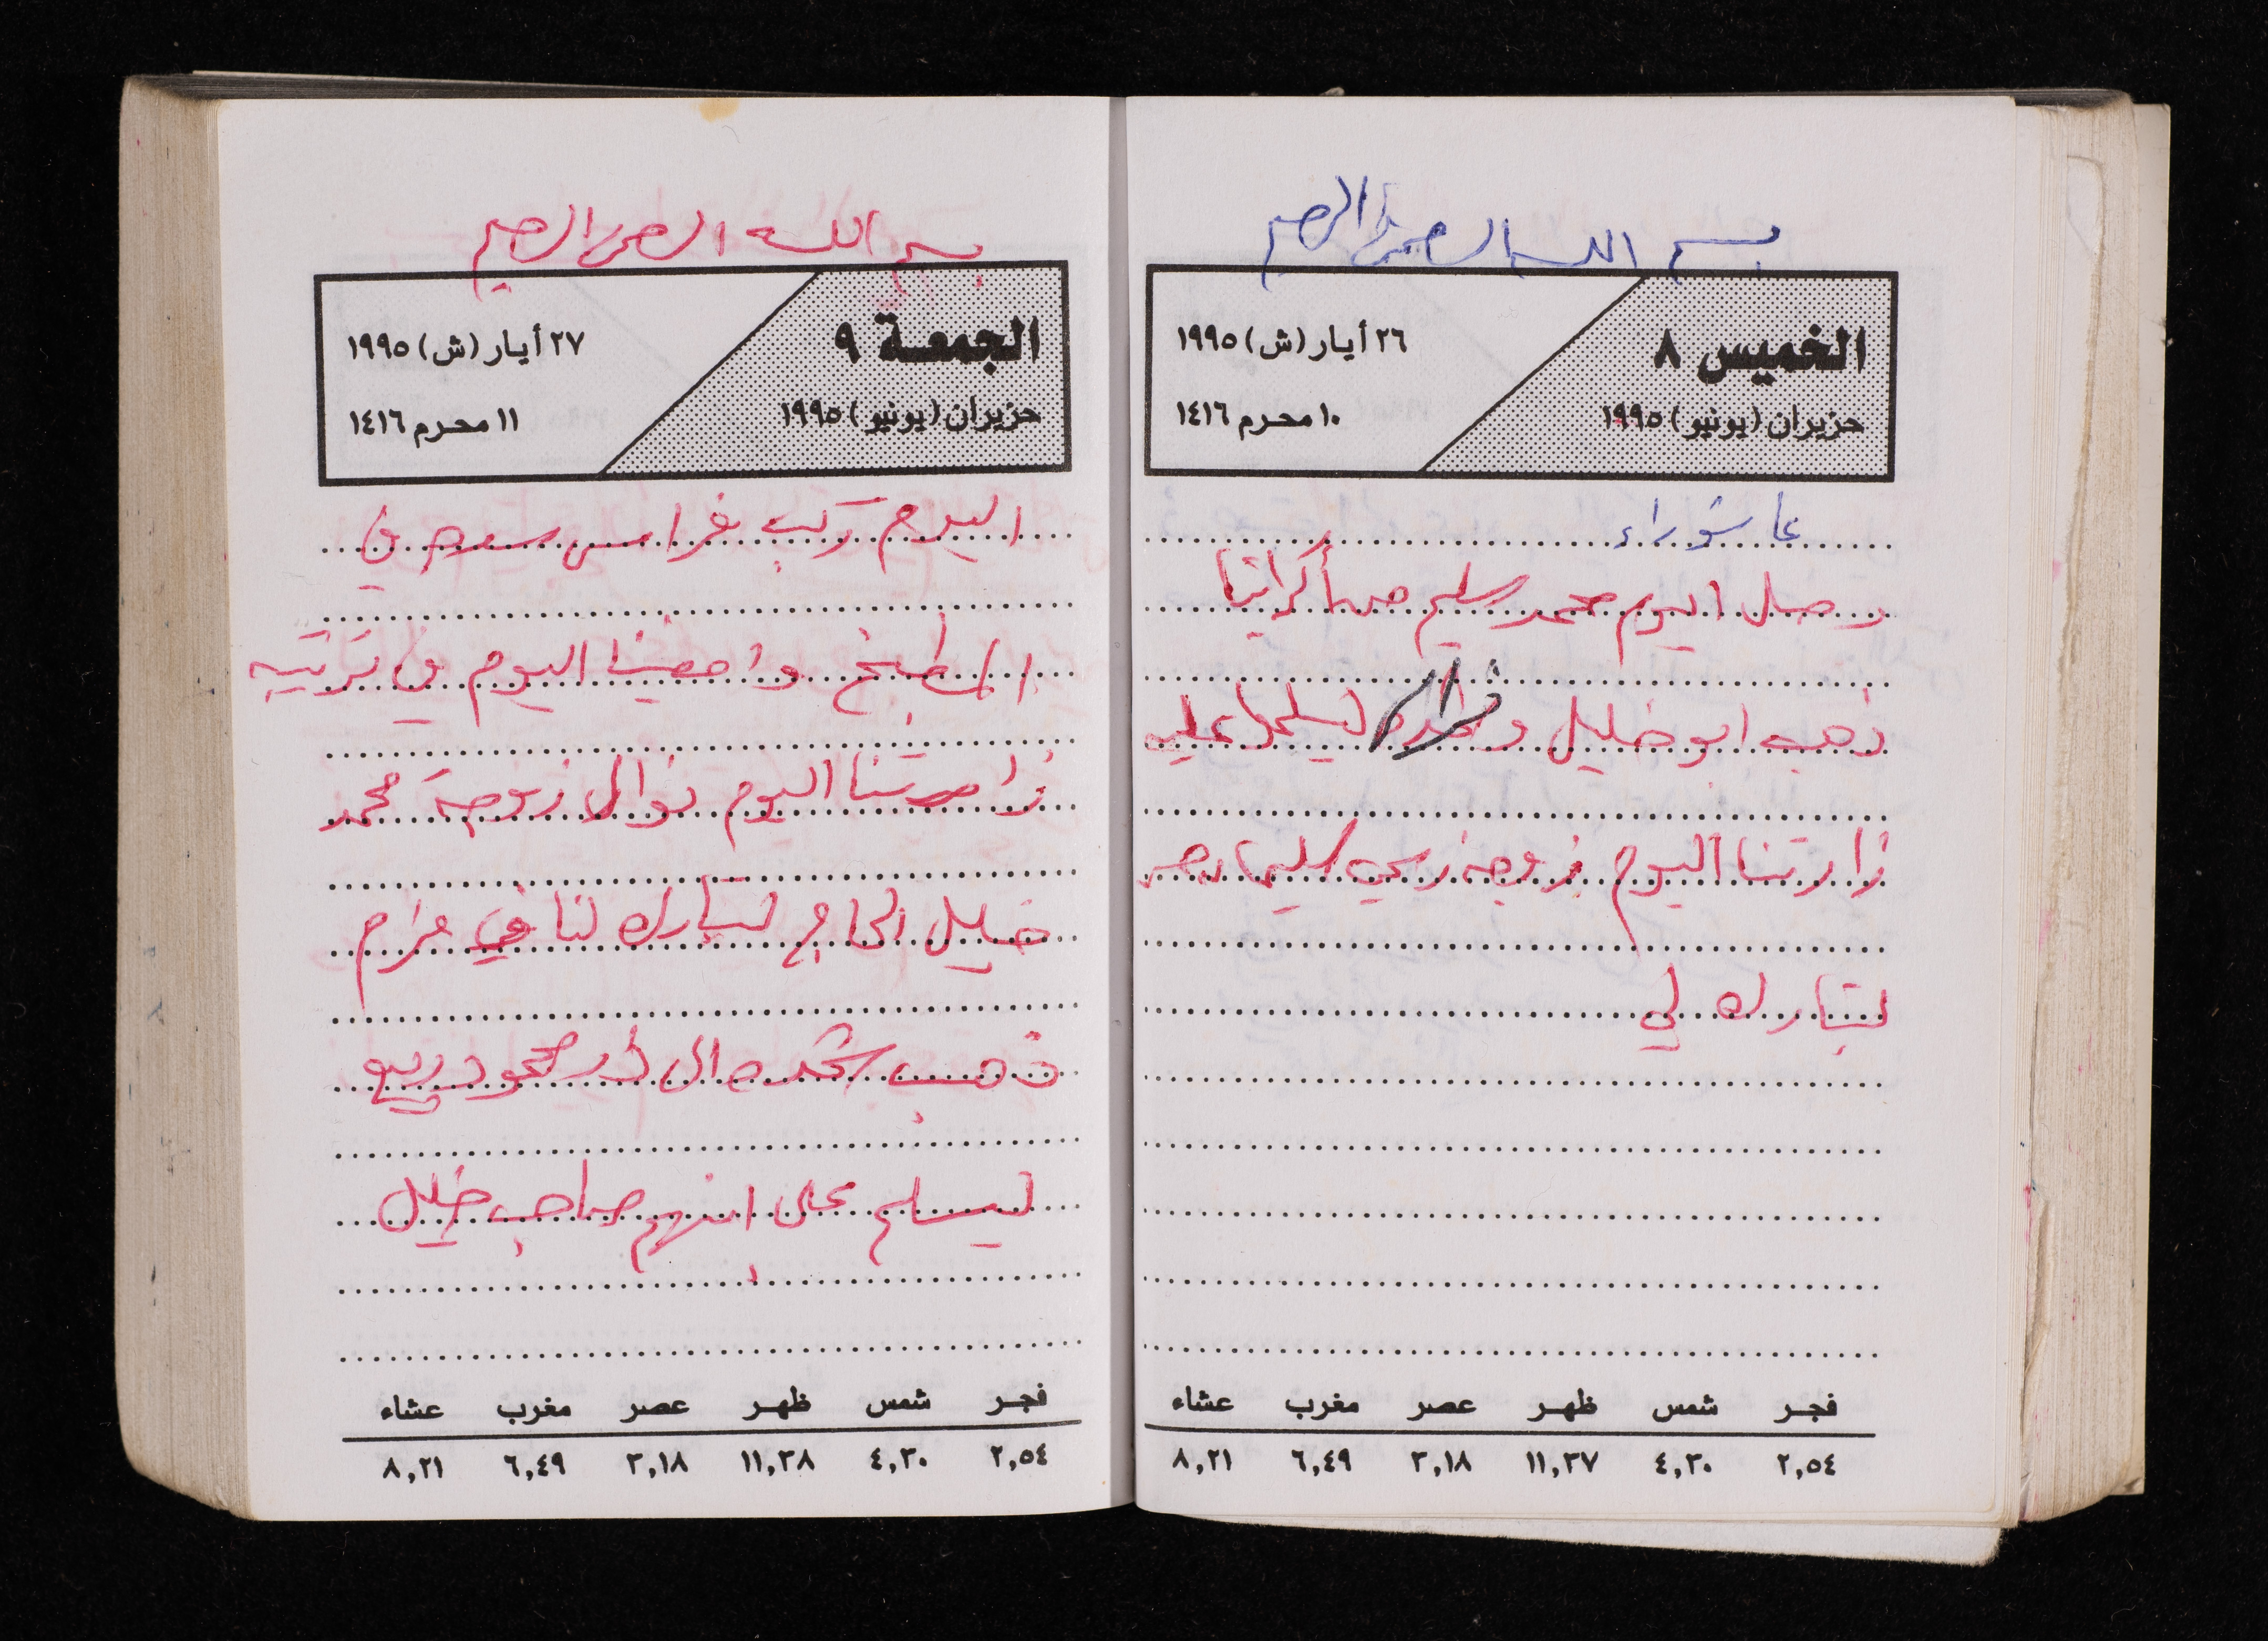 بسم الله الرحمن الرحيم
الخميس ٨
٢٦ أيار (ش) ١٩٩٥
حزيران (يونيو) ١٩٩٥
١٠ محرم ١٤١٦
عاشوراء
وصل اليوم محمد سليم من أكرانيا
ذهب ابو خليل و ليسلموا عليه
زارتنا اليوم زوجة
لتبارك لي
فجر شمس ظهر عصر مغرب عشاء
٢,٥٤ ٤,٣٠ ١١,٣٧ ٣,١٨ ٦,٤٩ ٨,٢١
بسم الله الرحمن الرحيم
الجمعة ٩
٢٧ أيار (ش) ١٩٩٥
حزيران (يونيو) ١٩٩٥
١١ محرم ١٤١٦
اليوم ركب فراس
المطبخ وامضينا اليوم في ترتيبه
زارتنا اليوم نوال زوجة محمد
خليل الحاج لتبارك لنا في مرام
ذهب الى دار محمود ربيع
ليسلم على ابنهم صاحب خليل
فجر شمس ظهر عصر مغرب عشاء
٢,٥٤ ٤,٣٠ ١١,٣٨ ٣,١٨ ٦,٤٩ ٨,٢١